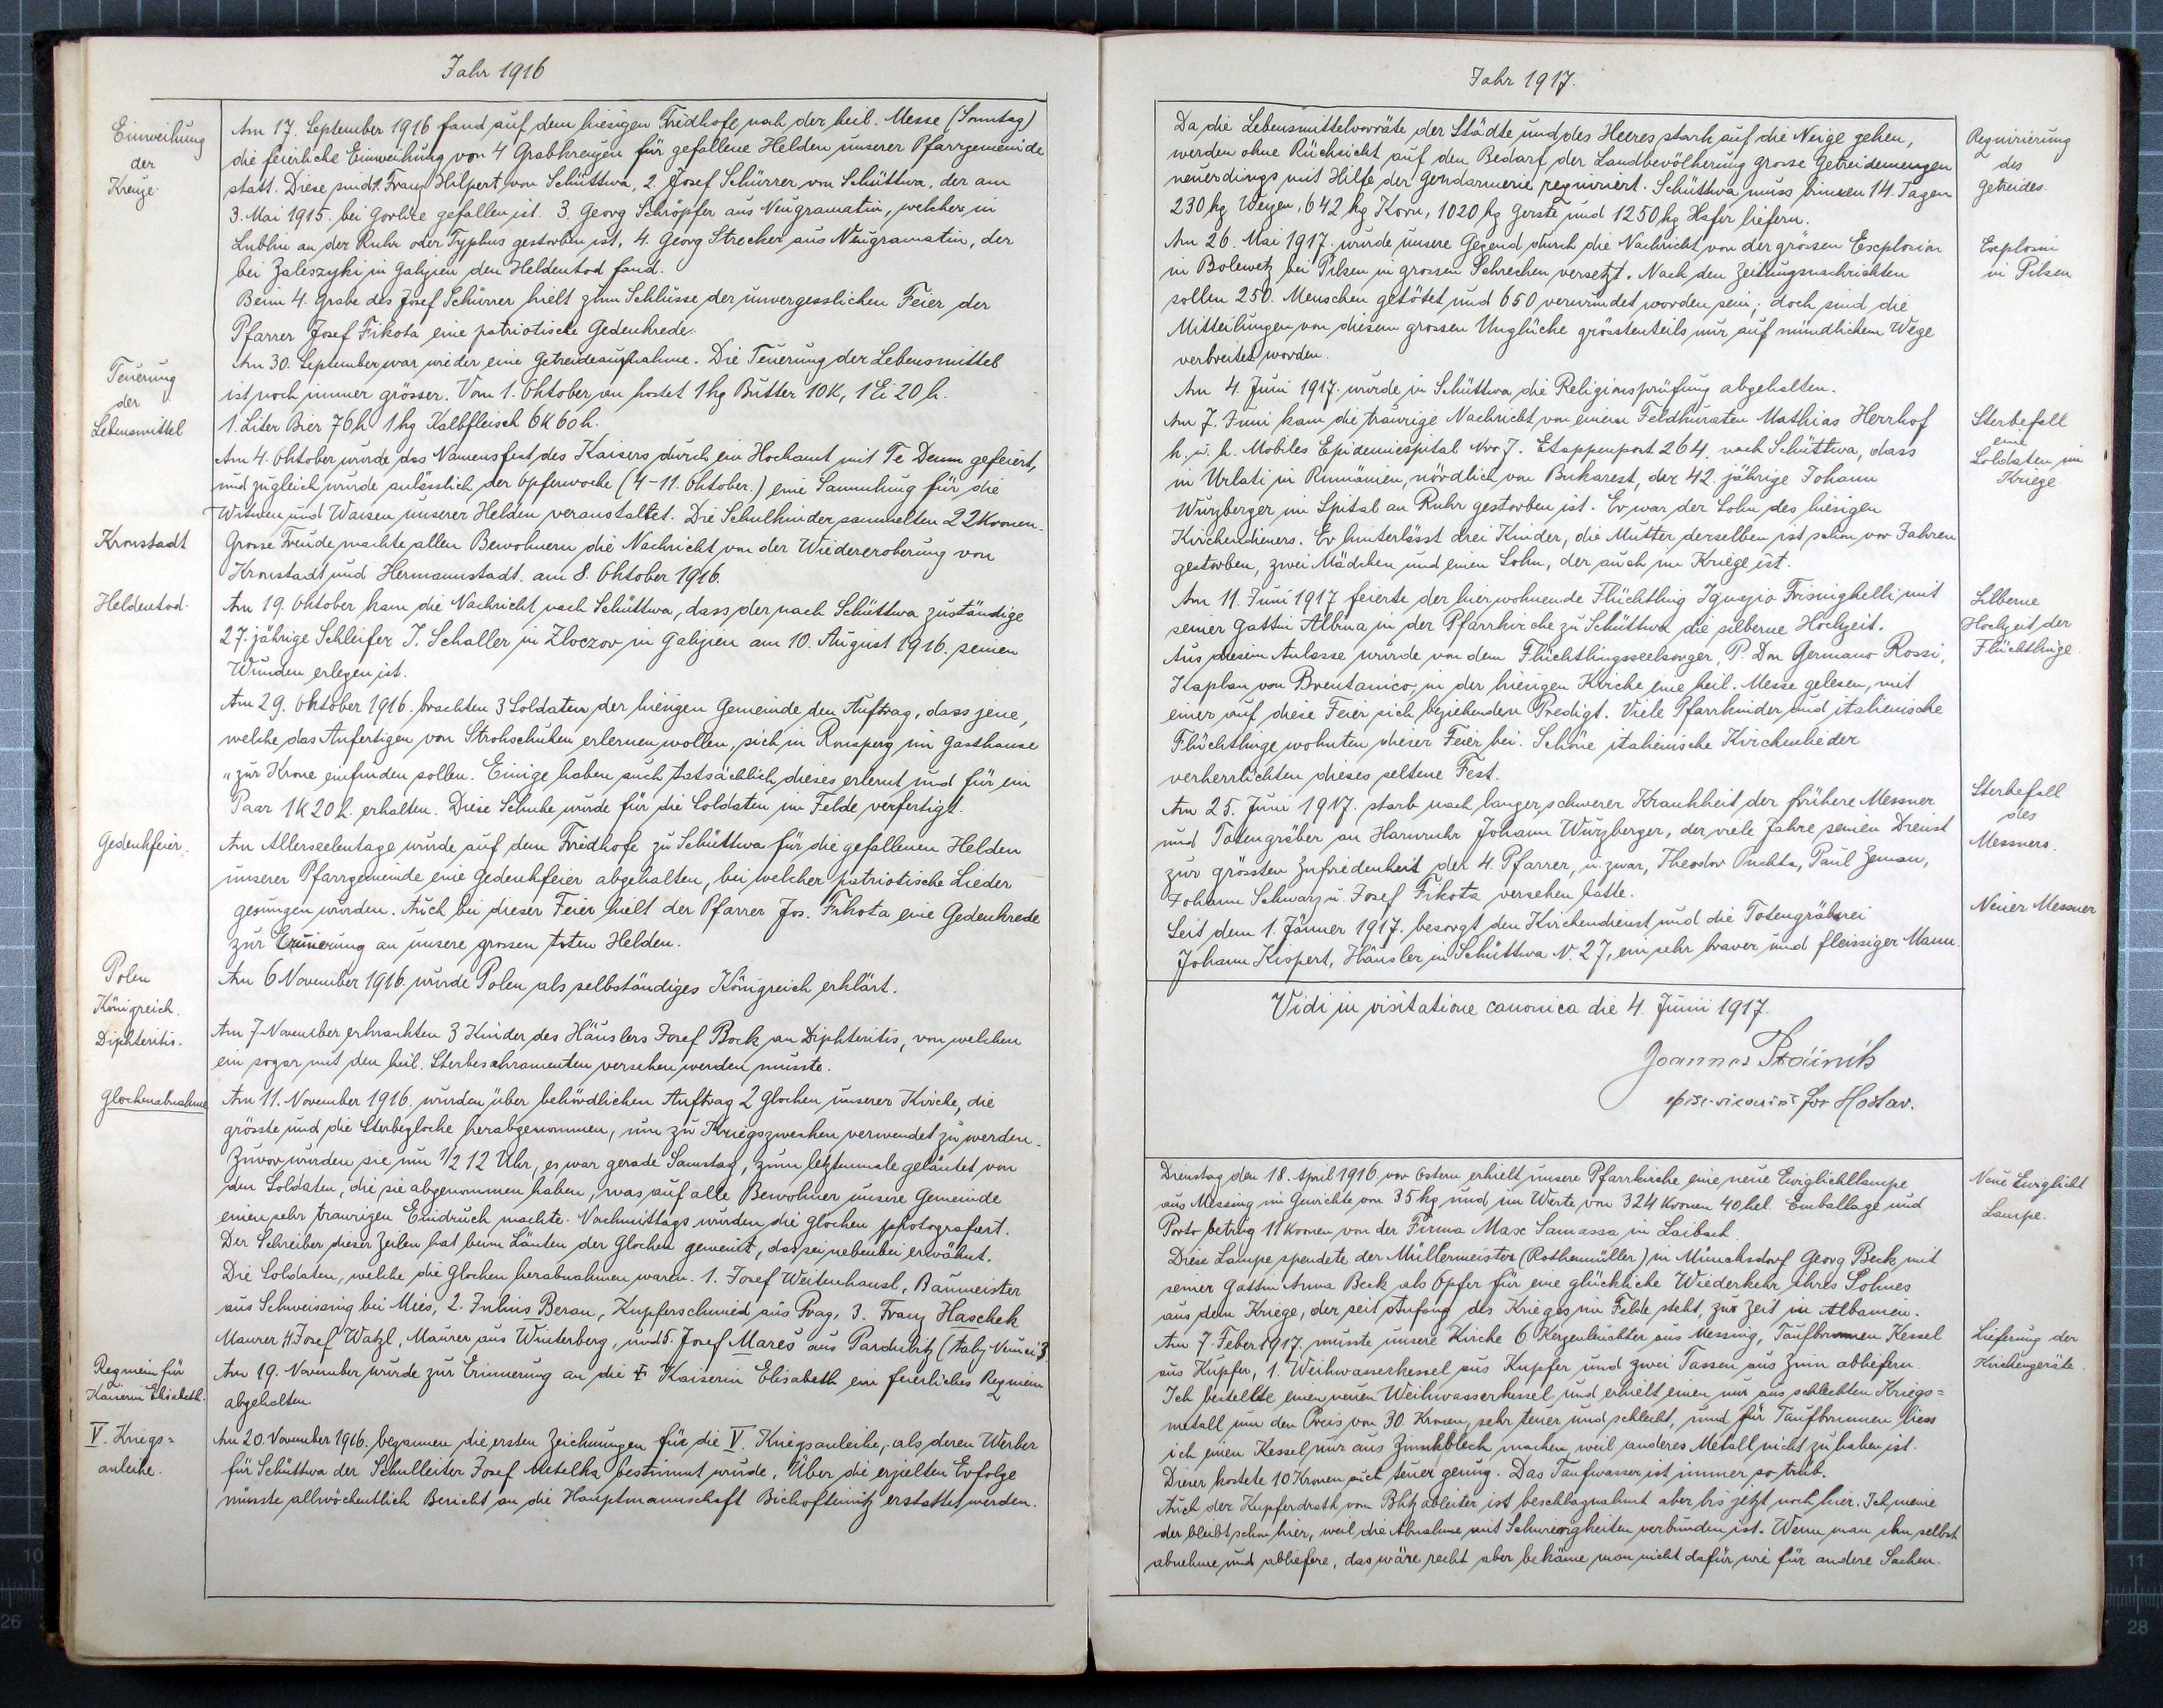 Jahr 1916
Einweihung
der
Kreuze.
Am 17. September 1916 fand auf dem hiesigen Friedhofe nach der heil. Messe (Sonntag)
die feierliche Einweihung von 4 Grabkreuzen für gefallene Helden unserer Pfarrgemeinde
statt. Diese sind 1. Franz Hilpert von Schüttwa, 2. Josef Schürrer von Schüttwa, der am
3. Mai 1915. bei Gorlice gefallen ist. 3. Georg Schröpfer aus Neugramatin, welcher in
Lublin an der Ruhr oder Typhus gestorben ist, 4. Georg Strecker aus Neugramatin, der
bei Zaleszyki in Galizien den Heldentod fand.
Beim 4. Grabe des Josef Schürrer hielt zum Schlusse der unvergesslichen Feier der
Pfarrer Josef Fikota eine patriotische Gedenkrede.
Teuerung
der
Lebensmittel
Am 30. September war wieder eine Getreideaufnahme. Die Teuerung der Lebensmittel
ist noch immer grösser. Vom 1. Oktober an kostet 1 kg Butter 10 K, 1 Ei 20 h.
1. Liter Bier 76 h 1 kg Kalbfleisch 6 K 60 h.
Am 4. Oktober wurde das Namensfest des Kaisers durch ein Hochamt mit Te Deum gefeiert,
und zugleich wurde anlässlich der Opferwoche (4-11. Oktober.) eine Sammlung für die
Witwen und Waisen unserer Helden veranstaltet. Die Schulkinder sammelten 22 Kronen.
Kronstadt
Grosse Freude machte allen Bewohnern die Nachricht von der Wiedereroberung von
Kronstadt und Hermannstadt. am 8. Oktober 1916.
Heldentod.
Am 19. Oktober kam die Nachricht nach Schüttwa, dass der nach Schüttwa zuständige
27. jährige Schleifer J. Schaller in Zloczov in Galizien am 10. August 1916. seinen
Wunden erlegen ist.
Am 29. Oktober 1916. brachten 3 Soldaten der hiesigen Gemeinde den Auftrag, dass jene,
welche das Anfertigen von Strohschuhen erlernen wollen, sich in Ronsperg im Gasthause
"zur Krone einfinden sollen. Einige haben auch tatsächlich dieses erlernt und für ein
Paar 1 K 20 h. erhalten. Diese Schuhe wurde für die Soldaten im Felde verfertigt.
Gedenkfeier.
Am Allerseelentage wurde auf dem Friedhofe zu Schüttwa für die gefallenen Helden
unserer Pfarrgemeinde eine Gedenkfeier abgehalten, bei welcher patriotische Lieder
gesungen wurden. Auch bei dieser Feier hielt der Pfarrer Jos. Fikota eine Gedenkrede
zur Erinnerung an unsere grossen toten Helden.
Polen
Königreich.
Am 6 November 1916. wurde Polen als selbständiges Königreich erklärt.
Diphteritis.
Am 7. November erkrankten 3 Kinder des Häuslers Josef Bock an Diphteritis, von welchen
ein sogar mit den heil. Sterbesakramenten versehen werden musste.
Glockenabnahme
Am 11. November 1916. wurden über behördlichen Auftrag 2 Glocken unserer Kirche, die
grösste und die Sterbeglocke herabgenommen, um zu Kriegszwecken verwendet zu werden.
Zuvor wurden sie um 1/2 12 Uhr, es war gerade Samstag, zum letztenmale geläutet von
den Soldaten, die sie abgenommen haben, was auf alle Bewohner unsere Gemeinde
einen sehr traurigen Eindruck machte. Nachmittags wurden die Glocken photografiert.
Der Schreiber dieser Zeilen hat beim Läuten der Glocken geweint, das sei nebenbei erwähnt.
Die Soldaten, welche die Glocken herabnahmen waren. 1. Josef Weitenhansl, Baumeister
aus Schweissing bei Mies, 2. Julius Beran, Kupferschmied aus Prag, 3. Franz Haschek
Maurer 4. Josef Watzl, Maurer aus Winterberg, und 5. Josef Mareš aus Pardubitz
Requiem für
Kaiserin Elisabeth.
Am 19. November wurde zur Erinnerung an die † Kaiserin Elisabeth ein feierliches Requiem
abgehalten
V. Kriegs=
anleihe.
Am 20. November 1916. begannen die ersten Zeichnungen für die V. Kriegsanleihe, als deren Werber
für Schüttwa der Schulleiter Josef Metelka bestimmt wurde. Über die erzielten Erfolge
musste allwöchentlich Bericht an die Hauptmannschaft Bischofteinitz erstattet werden.
Jahr 1917.
Da die Lebensmittelvorräte der Städte und des Heeres stark auf die Neige gehen,
werden ohne Rücksicht auf den Bedarf der Landbevölkerung grosse Getreidemengen
neuerdings mit Hilfe der Gendarmerie requiriert. Schüttwa muss binnen 14. Tagen
230 kg Weizen, 642 kg Korn, 1020 kg Gerste und 1250 kg Hafer liefern.
Requirierung
des
Getreides.
Am 26. Mai 1917. wurde unsere Gegend durch die Nachricht von der grossen Explosion
in Bolewetz bei Pilsen in grossen Schrecken versetzt. Nach den Zeitungsnachrichten
sollen 250. Menschen getötet und 650 verwundet worden sein; doch sind die
Mitteilungen von diesem grossen Unglücke grösstenteils nur auf mündlichem Wege
verbreitet worden.
Explosion
in Pilsen
Am 4. Juni 1917. wurde in Schüttwa die Religionsprüfung abgehalten.
Am 7. Juni kam die traurige Nachricht von einem Feldkuraten Mathias Herrhof
k. u. k. Mobiles Epidemiespital Nro 7. Etappenpost 264. nach Schüttwa, dass
in Urlati in Rumänien, nördlich von Bukarest, der 42. jährige Johann
Wurzberger im Spital an Ruhr gestorben ist. Er war der Sohn des hiesigen
Kirchendieners. Er hinterlässt drei Kinder, die Mutter derselben ist schon vor Jahren
gestorben, zwei Mädchen und einen Sohn, der auch im Kriege ist.
Sterbefall
eine
Soldaten im
Kriege.
Am 11. Juni 1917 feierte der hier wohnende Flüchtling Ignazio Frisinghelli mit
seiner Gattin Albina in der Pfarrkirche zu Schüttwa die silberne Hochzeit.
Aus diesem Anlasse wurde von dem Flüchtlingsseelsorger, P. Don Germano Rossi,
Kaplan von Brentonico, in der hiesigen Kirche eine heil. Messe gelesen, mit
einer auf diese Feier sich beziehenden Predigt. Viele Pfarrkinder und italienische
Flüchtlinge wohnten dieser Feier bei. Schöne italienische Kirchenlieder
verherrlichten dieses seltene Fest.
Silberne
Hochzeit der
Flüchtlinge.
Am 25. Juni 1917. starb nach langer, schwerer Krankheit der frühere Messner
und Totengräber an Harnruhr Johann Wurzberger, der viele Jahre seinen Dienst
zur grössten Zufriedenheit der 4. Pfarrer, u. zwar, Theodor Puchta, Paul Zeman,
Johann Schwarz u. Josef Fikota versehen hatte.
Sterbefall
des
Messners.
Seit dem 1. Jänner 1917. besorgt den Kirchendienst und die Totengräberei
Johann Kispert, Häusler in Schüttwa N. 27, ein sehr braver und fleissiger Mann.
Neuer Messner
Vidi in visitatione canonica die 4. Junii 1917.
Joannes
for Hostav.
Dienstag den 18. April 1916 vor Ostern erhielt unsere Pfarrkirche eine neue Ewiglichtlampe
aus Messing im Gewichte von 35 kg und im Werte von 324 Kronen 40 hel. Emballage und
Porto betrug 11 Kronen von der Firma Max Samassa in Laibach.
Diese Lampe spendete der Müllermeister (Rothenmüller) in Münchsdorf Georg Beck mit
seiner Gattin Anna Beck als Opfer für eine glückliche Wiederkehr ihres Sohnes
aus dem Kriege, der seit Anfang des Krieges im Felde steht, zur Zeit in Albanien.
Neue Ewiglicht
Lampe.
Am 7. Feber 1917. musste unsere Kirche 6. Kerzenleuchter aus Messing, Taufbrunnen Kessel
aus Kupfer, 1. Weihwasserkessel aus Kupfer und zwei Tassen aus Zinn abliefern.
Ich bestellte einen neuen Weihwasserkessel und erhielt einen nur aus schlechten Kriegs=
metall um den Preis von 30. Kronen, sehr teuer und schlecht, und für Taufbrunnen liess
ich einen Kessel nur aus Zinnkblech machen, weil anderes Metall nicht zu haben ist.
Dieser kostete 10 Kronen auch teuer genug. Das Taufwasser ist immer so trüb.
Auch der Kupferdrath vom Blitzableiter ist beschlagnahmt aber bis jetzt noch hier. Ich meine
der bleibt schon hier, weil die Abnahme mit Schwierigkeiten verbunden ist. Wenn man ihn selbst
abnehme und abliefere, das wäre recht aber bekäme man nicht dafür wie für andere Sachen.
Lieferung der
Kirchengeräte.
10
26
11
28